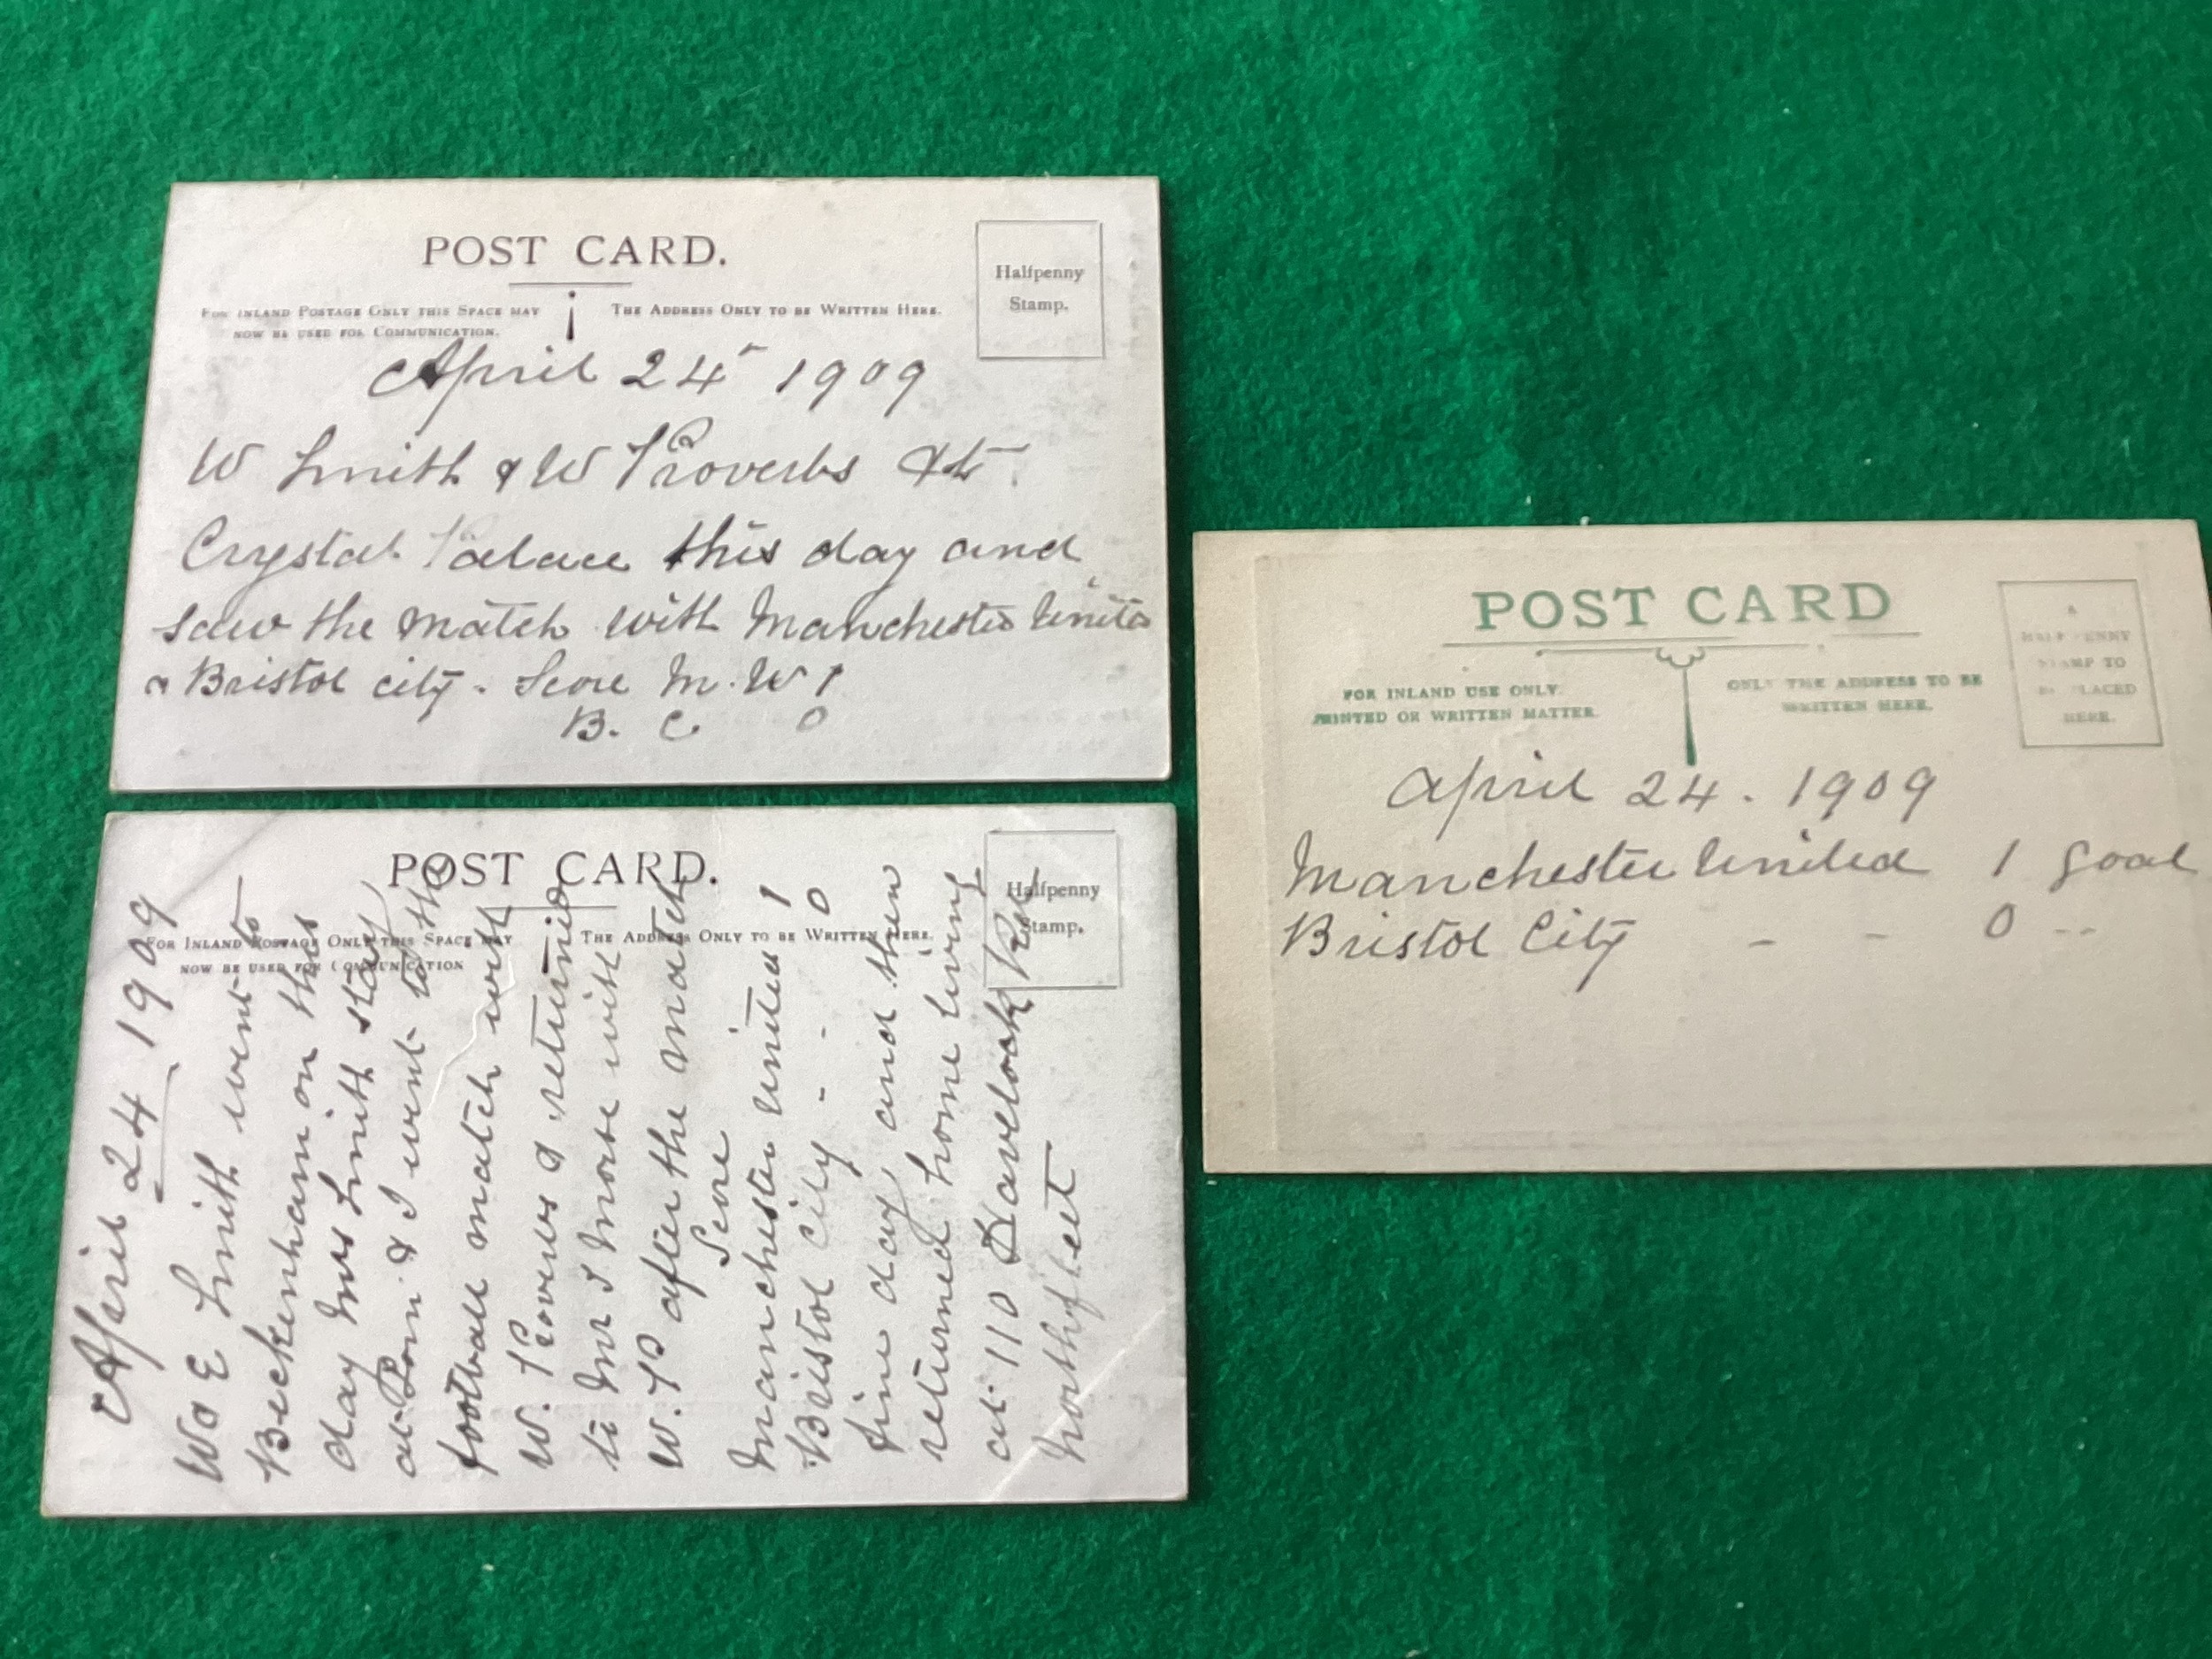 POST CARD.
Halfpenny
Stamp.
FOR INLAND POSTAGE ONLY THIS SPACE MAY
NOW BE USED FOR COMMUNICATION.
THE ADDRESS ONLY TO BE WRITTEN HERE.
April 24 1909
W Smith & W Proverbs At
Crystal Palace this day and
saw the match with Manchester United
& Bristol city. Score M. U 1
B. C. 0
POST CARD.
Halfpenny
Stamp.
FOR INLAND POSTAGE ONLY THIS SPACE MAY
NOW BE USED FOR COMMUNICATION
THE ADDRESS ONLY TO BE WRITTEN HERE.
April 24 1909
W & E Smith went to
Beckenham on this
day Mrs Smith stay
at & I went to the
football match with
W. Proverbs & returned
to Mr J with
W. P after the match
Score
Manchester United 1
Bristol City - - 0
fine day and then
returned home living
at 110 Havelock Rd
Northfleet
POST CARD
A
HALFPENNY
STAMP TO
BE PLACED
HERE.
FOR INLAND USE ONLY.
PRINTED OR WRITTEN MATTER.
ONLY THE ADDRESS TO BE
WRITTEN HERE.
April 24. 1909
Manchester United 1 goal
Bristol City - - 0 --